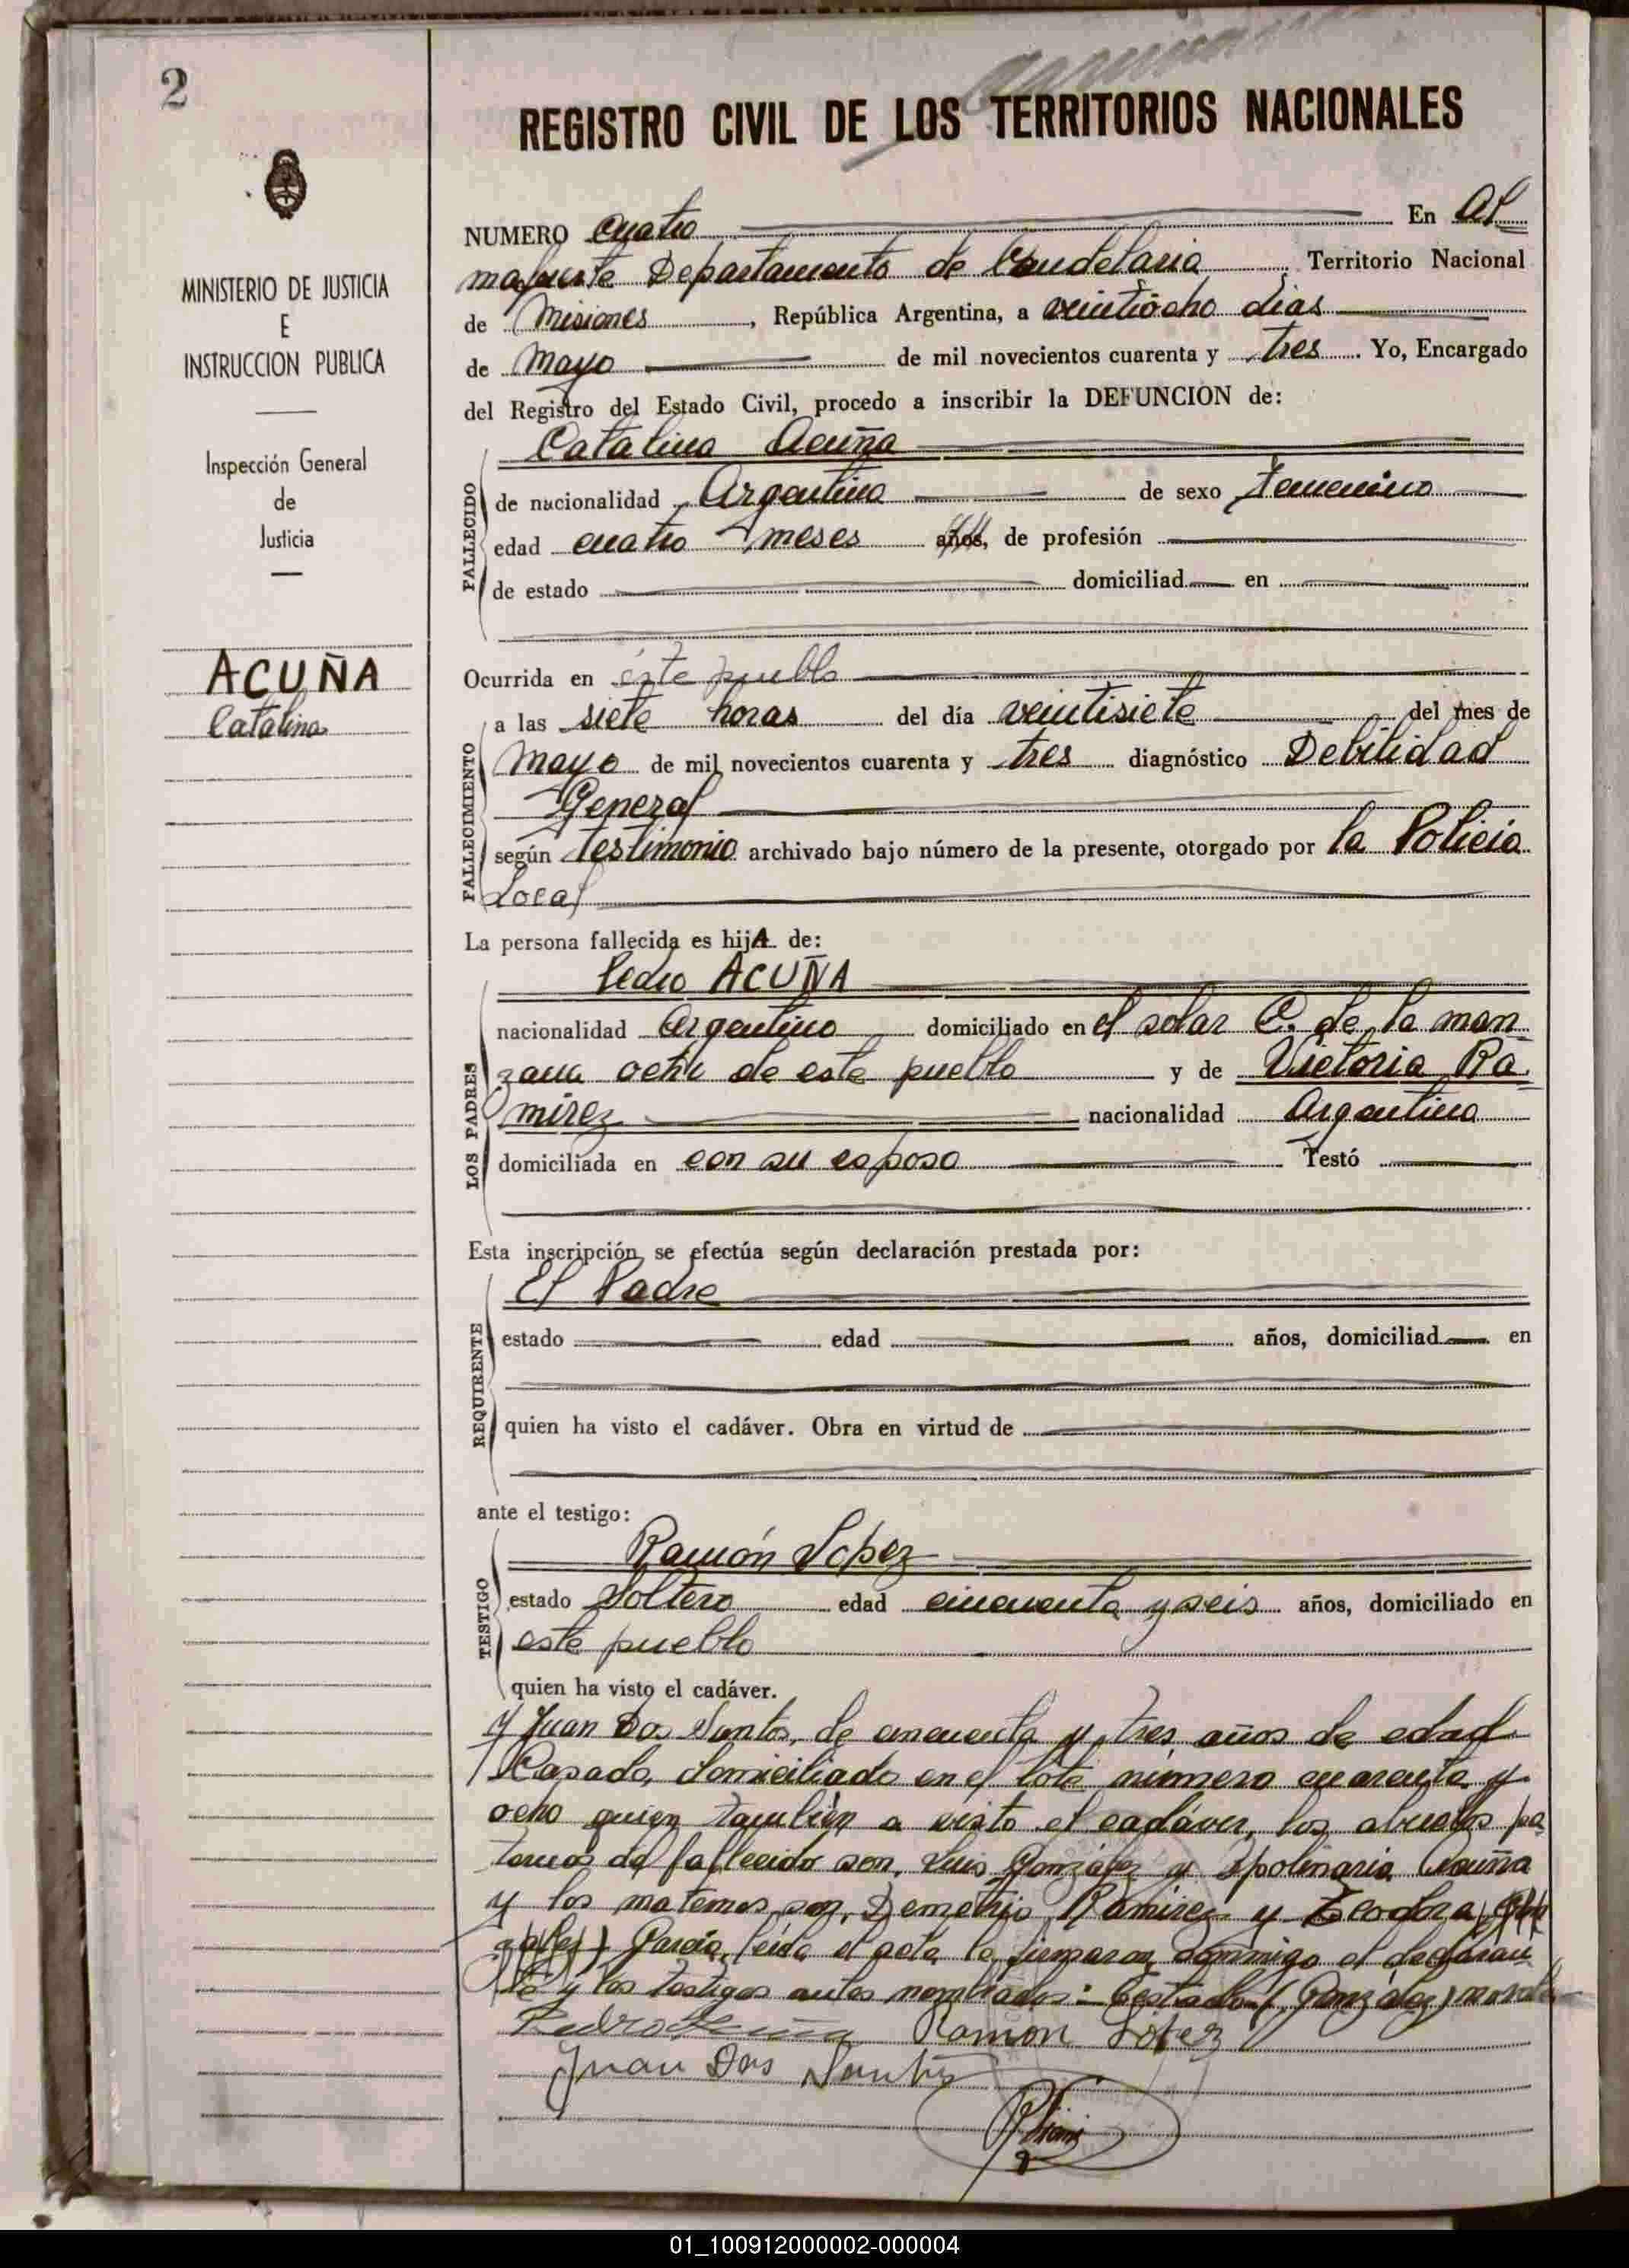 2
REGISTRO CIVIL DE LOS TERRITORIOS NACIONALES
MINISTERIO DE JUSTICIA
E
INSTRUCCION PUBLICA
Inspección General
de
Justicia
ACUÑA
Catalina
NUMERO cuatro En Al
mafuerte Departamento de Candelaria Territorio Nacional
de Misiones, República Argentina, a veintiocho dias
de Mayo de mil novecientos cuarenta y tres. Yo, Encargado
del Registro del Estado Civil, procedo a inscribir la DEFUNCION de:
Catalina Acuña
FALLECIDO
de nacionalidad Argentina de sexo Femenino
edad cuatro meses años, de profesión
de estado domiciliad en
Ocurrida en éste pueblo
FALLECIMIENTO
a las siete horas del día veintisiete del mes de
Mayo de mil novecientos cuarenta y tres diagnóstico Debilidad
General
según testimonio archivado bajo número de la presente, otorgado por la Policia
Local
La persona fallecida es hijA de:
Pedro ACUÑA
LOS PADRES
nacionalidad Argentino domiciliado en el solar C. de la man
zana ocho de este pueblo y de Victoria Ra
mirez nacionalidad Argentina
domiciliada en con su esposo Testó
Esta inscripción se efectúa según declaración prestada por:
El Padre
REQUIRENTE
estado edad años, domiciliad en
quien ha visto el cadáver. Obra en virtud de
ante el testigo:
Ramón Lopez
TESTIGO
estado Soltero edad cincuenta y seis años, domiciliado en
este pueblo
quien ha visto el cadáver.
y Juan Dos Santos, de cincuenta y tres años de edad
Casado, domiciliado en el lote número cuarenta y
ocho quien también a visto el cadáver, los abuelos pa
ternos del fallecido son, Luis Gonzalez y Apolinaria Acuña
y los maternos son, Demetrio Ramirez y Teodora
Garcia, leida el acta la firmaron conmigo el declaran
te y los testigos antes nombrados:- Testado (Gonzalez) no vale
Pedro Acuña Ramon Lopez
Juan Dos Santos
01_100912000002-000004